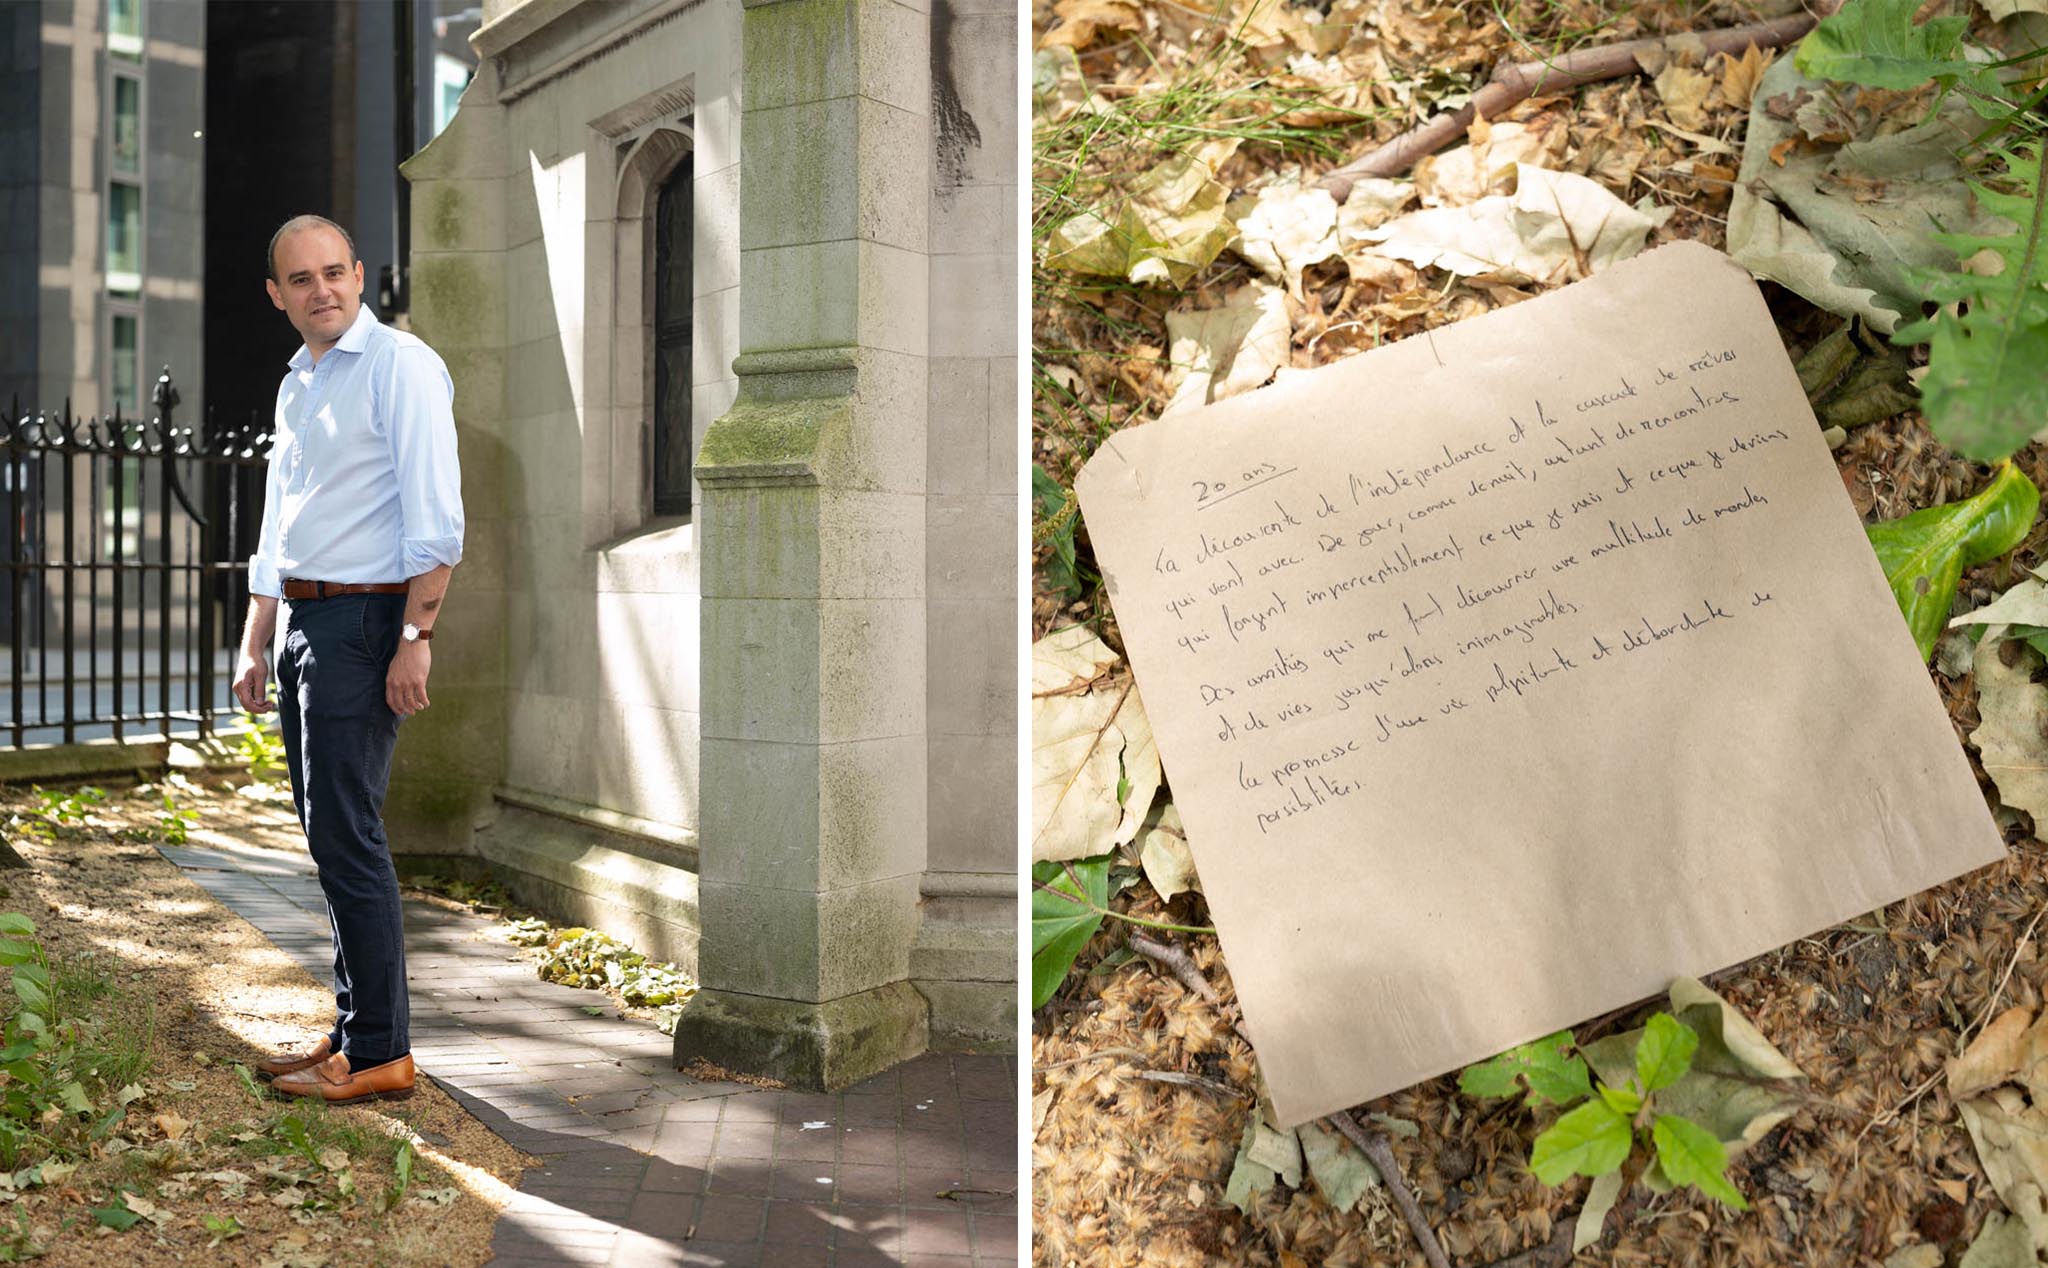 20 ans
La découverte de l'indépendance et la cascade de rêves
qui vont avec. De jour, comme de nuit, autant de rencontres
qui forgent imperceptiblement ce que je suis et ce que je deviens
Des amitiés qui me font découvrir une multitude de mondes
et de vies jusqu'alors inimaginables.
La promesse d'une vie palpitante et débordante de
possibilités.